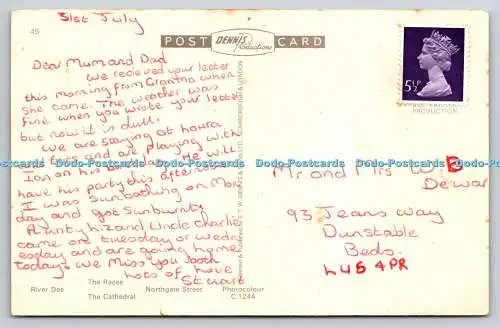 45
31st July
POST CARD
DENNIS
Productions
Dear Mum and Dad
We recieved your letter
this morning from Grandma when
she came. The weather was
fine when you wrote your letter
but now it is dull.
We are staying at
and are playing with
Ian on his birthday. He will
have his party this afternoon
I was Sunbathing on Mon
day and got Sunburnt
Aunty Liz and Uncle Charlie
came on tuesday or wedn
esday and are going home
today. We miss you both
lots of love
Stuart
River Dee
The Races
The Cathedral
Northgate Street
Photocolour
C.1244
5½P
Mr and Mrs W E
Dewar
93 Jeans Way
Dunstable
Beds.
LU5 4PR
Dodo-Postcards Dodo-Postcards Dodo-Postcards Dodo-Postcards Dodo-Postcards